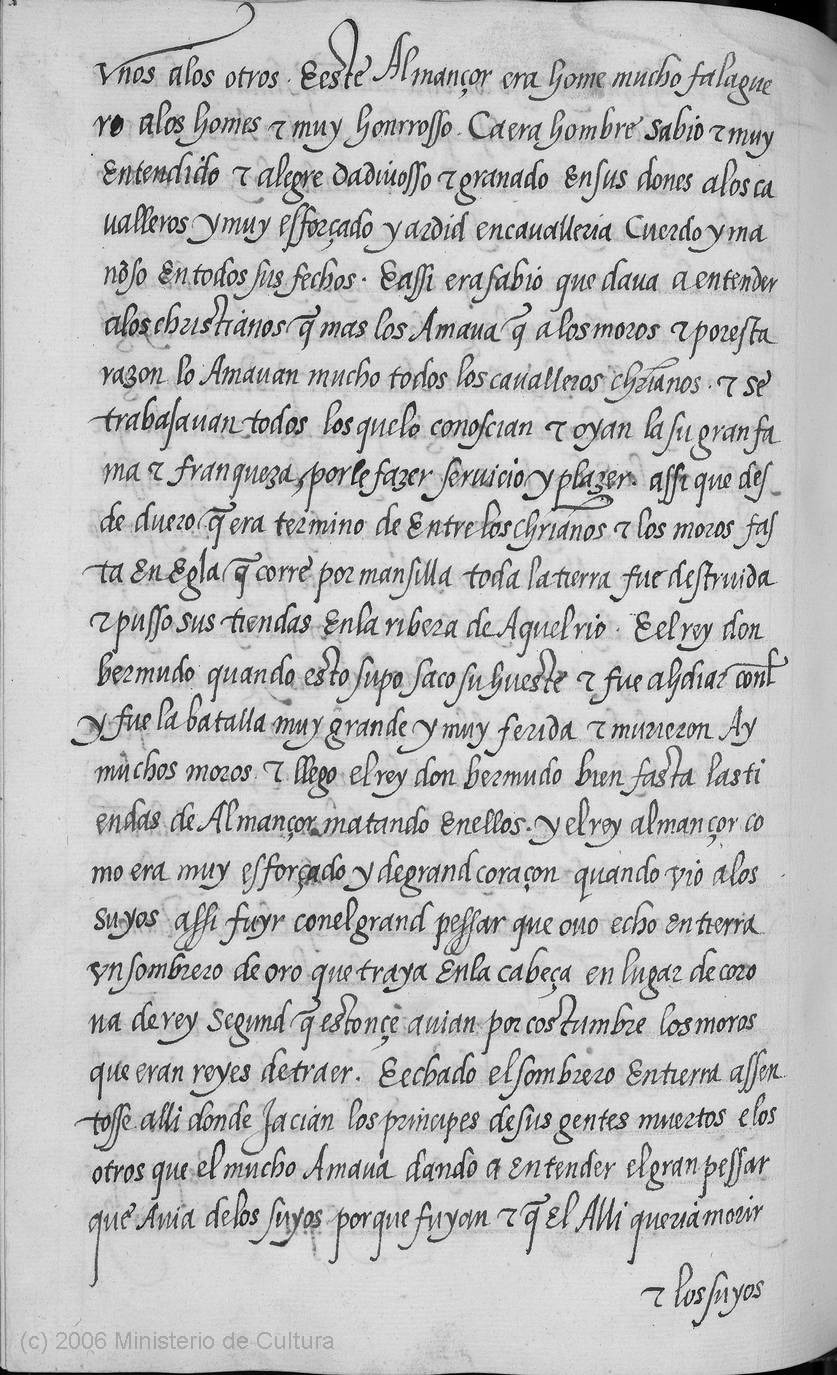 vnos alos otros. Eeste Almançor era home mucho falague
ro alos homes & muy honrrosso. Ca era hombre sabio & muy
Entendido & alegre dadiuosso & granado Ensus dones alos ca
ualleros y muy esforçado y ardid encaualleria Cuerdo y ma
noso En todos sus fechos. Eassi era sabio que daua a entender
alos christianos q̃ mas los Amaua q̃ a los moros & poresta
razon lo Amauan mucho todos los caualleros chr̃ianos. & se
trabajauan todos los quelo conoscian & oyan la su gran fa
ma & franqueza, porle fazer seruicio y plazer. assi que des
de duero q̃ era termino de Entre los chr̃ianos & los moros fas
ta En Egla q̃ corre por mansilla toda la tierra fue destruida
& pusso sus tiendas Enla ribera de Aquel rio. Eel rey don
bermudo quando esto supo saco su hueste & fue a lidiar conl
y fue la batalla muy grande y muy ferida & murieron Ay
muchos moros & llego el rey don bermudo bien fasta las ti
endas de Almançor matando Enellos. y el rey almançor co
mo era muy esforçado y degrand coraçon quando vio alos
suyos assi fuyr conel grand pessar que ouo echo en tierra
vn sombrero de oro que traya Enla cabeça en lugar de coro
na de rey Segund q̃ estonçe auian por costumbre los moros
que eran reyes de traer. Eechado el sombrero En tierra assen
tosse alli donde Jacian los principes de sus gentes muertos e los
otros que el mucho Amaua dando a Entender el gran pessar
que Auia delos suyos porque fuyan & q̃ El Alli queria morir
& los suyos
(c) 2006 Ministerio de Cultura